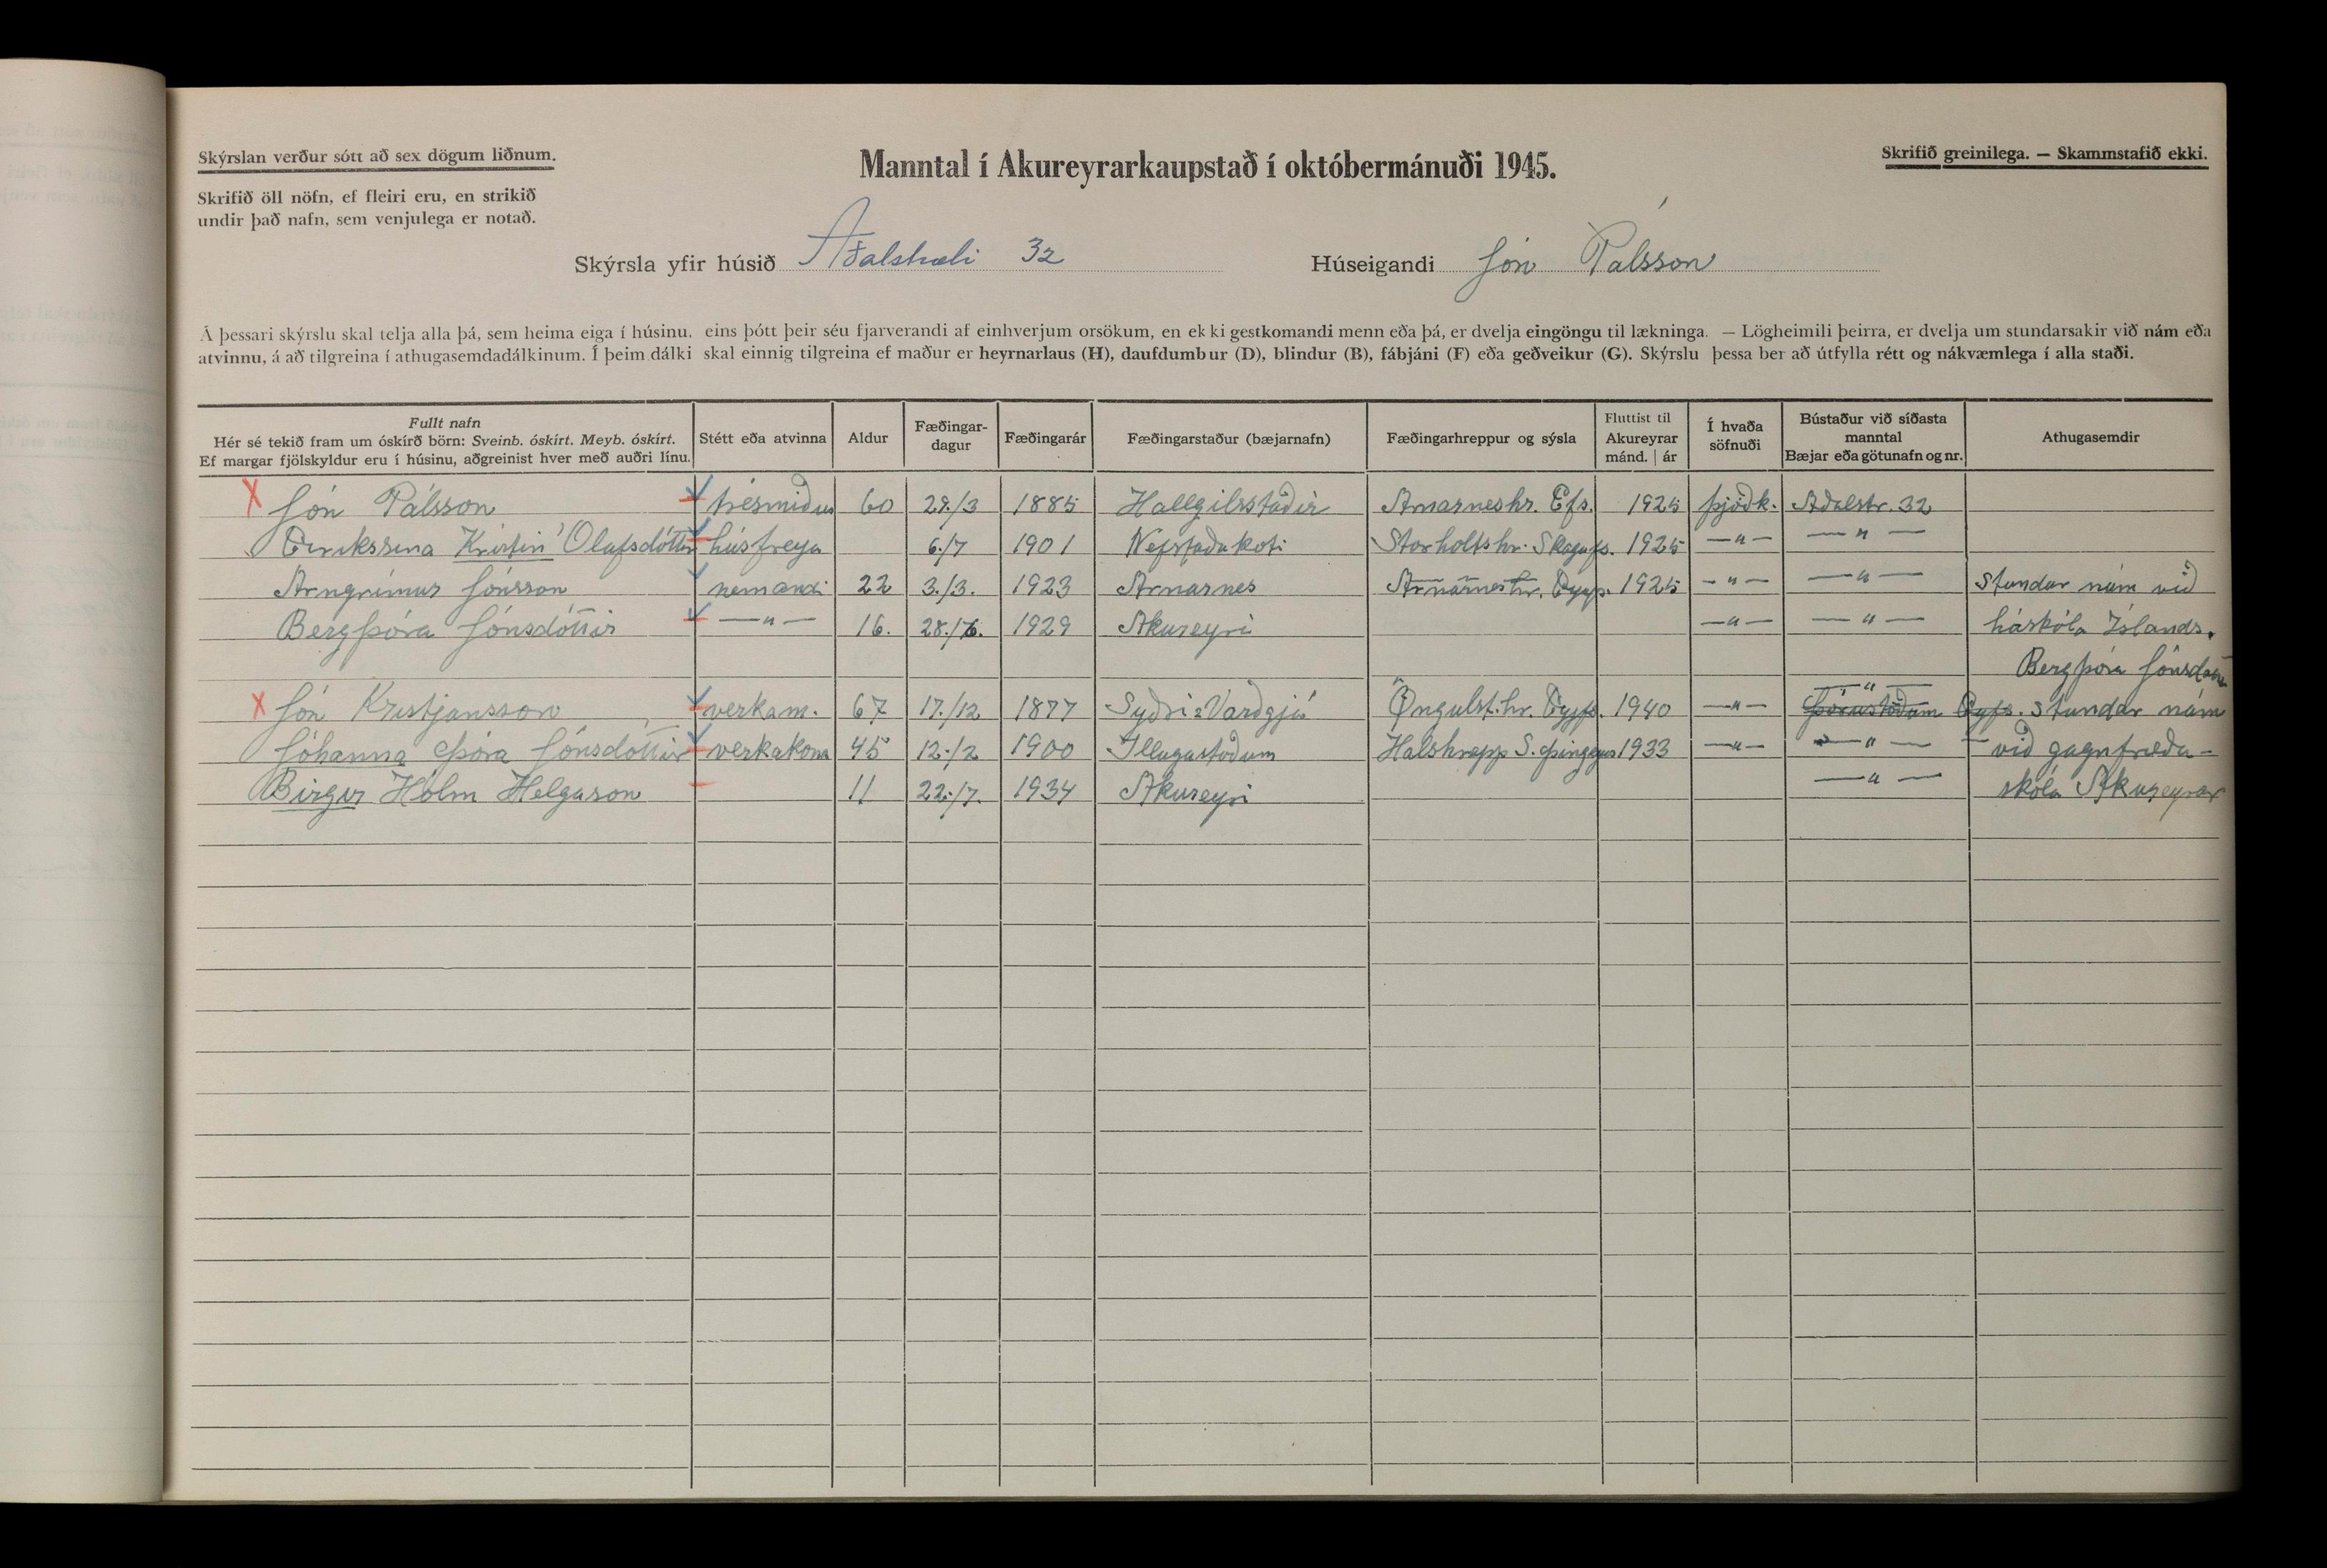 Skýrslan verður sótt að sex dögum liðnum.
Skrifið öll nöfn, ef fleiri eru, en strikið
undir það nafn, sem venjulega er notað.
Manntal í Akureyrarkaupstað í októbermánuði 1945.
Skrifið greinilega. — Skammstafið ekki.
Skýrsla yfir húsið Aðalstræti 32 Húseigandi Jón Pálsson
Á þessari skýrslu skal telja alla þá, sem heima eiga í húsinu, eins þótt þeir séu fjarverandi af einhverjum orsökum, en ekki gestkomandi menn eða þá, er dvelja eingöngu til lækninga. — Lögheimili þeirra, er dvelja um stundarsakir við nám eða
atvinnu, á að tilgreina í athugasemdadálkinum. Í þeim dálki skal einnig tilgreina ef maður er heyrnarlaus (H), daufdumbur (D), blindur (B), fábjáni (F) eða geðveikur (G). Skýrslu þessa ber að útfylla rétt og nákvæmlega í alla staði.
Fullt nafn
Hér sé tekið fram um óskírð börn: Sveinb. óskírt. Meyb. óskírt.
Ef margar fjölskyldur eru í húsinu, aðgreinist hver með auðri línu.
Stétt eða atvinna
Aldur
Fæðingar-
dagur
Fæðingarár
Fæðingarstaður (bæjarnafn)
Fæðingarhreppur og sýsla
Fluttist til
Akureyrar
mánd. | ár
Í hvaða
söfnuði
Bústaður við síðasta
manntal
Bæjar eða götunafn og nr.
Athugasemdir
X Jón Pálsson trésmiður 60 28./3 1885 Hallgilsstaðir Arnarneshr. Efs. 1925 þjóðk. Aðalstr. 32
Eirikssina Kristin Ólafsdóttir húsfreya 6./7 1901 Nefstaðakoti Storholtshr. Skagafs. 1925 —"— —"—
Arngrímur Jónsson nemandi 22 3./3. 1923 Arnarnes Arnarneshr. Eyjf. 1925 —"— —"— Stundar nám við
Bergþóra Jónsdóttir —"— 16. 28./6. 1929 Akureyri —"— —"— háskóla Íslands.
Bergþóra Jónsdóttir
X Jón Kristjansson verkam. 67 17./12 1877 Syðri-Varðgjá Öngulst.hr. Eyjf. 1940 —"— —"— Þórustöðum Eyjf. Stundar nám
Jóhanna Þóra Jónsdóttir verkakona 45 12./2 1900 Illugastoðum Halshrepp S. Þingeyus 1933 —"— —"— við gagnfræða-
Birgir Hólm Helgason 11 22./7. 1934 Akureyri —"— skóla Akureyrar